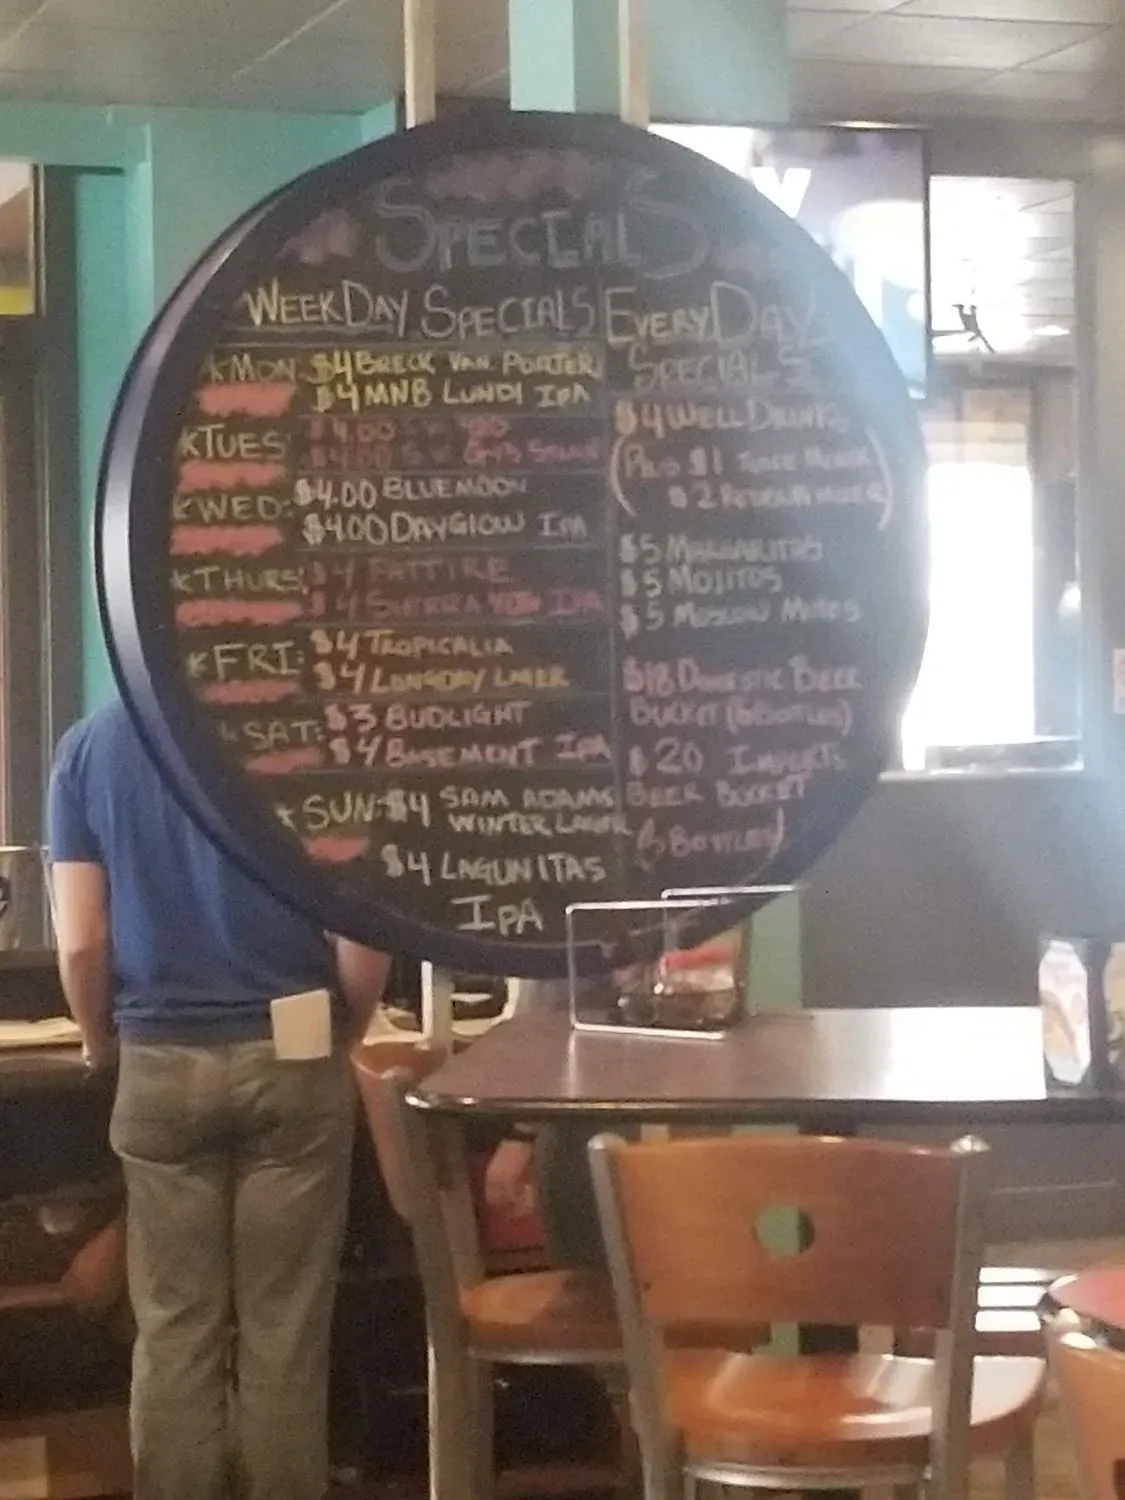 SPECIALS
WEEKDAY SPECIALS
*MON: $4 BRECK VAN. PORTER
$4 MNB LUNDI IPA
*TUES: $4.00 SW
$4.00 SW
*WED: $4.00 BLUEMOON
$4.00 DAYGLOW IPA
*THURS: $4 FATTIRE
$4 SIERRA IPA
*FRI: $4 TROPICALIA
$4 LONGDAY LAGER
*SAT: $3 BUDLIGHT
$4 BASEMENT IPA
*SUN: $4 SAM ADAMS
WINTER LAGER
$4 LAGUNITAS
IPA
EVERYDAY
SPECIALS
$4 WELL DRINKS
(PLUS $1
$2
$5 MARGARITAS
$5 MOJITOS
$5 MOSCOW MULES
$18 DOMESTIC BEER
BUCKET (6 BOTTLES)
$20 IMPORTS
BEER BUCKET
BOTTLES)